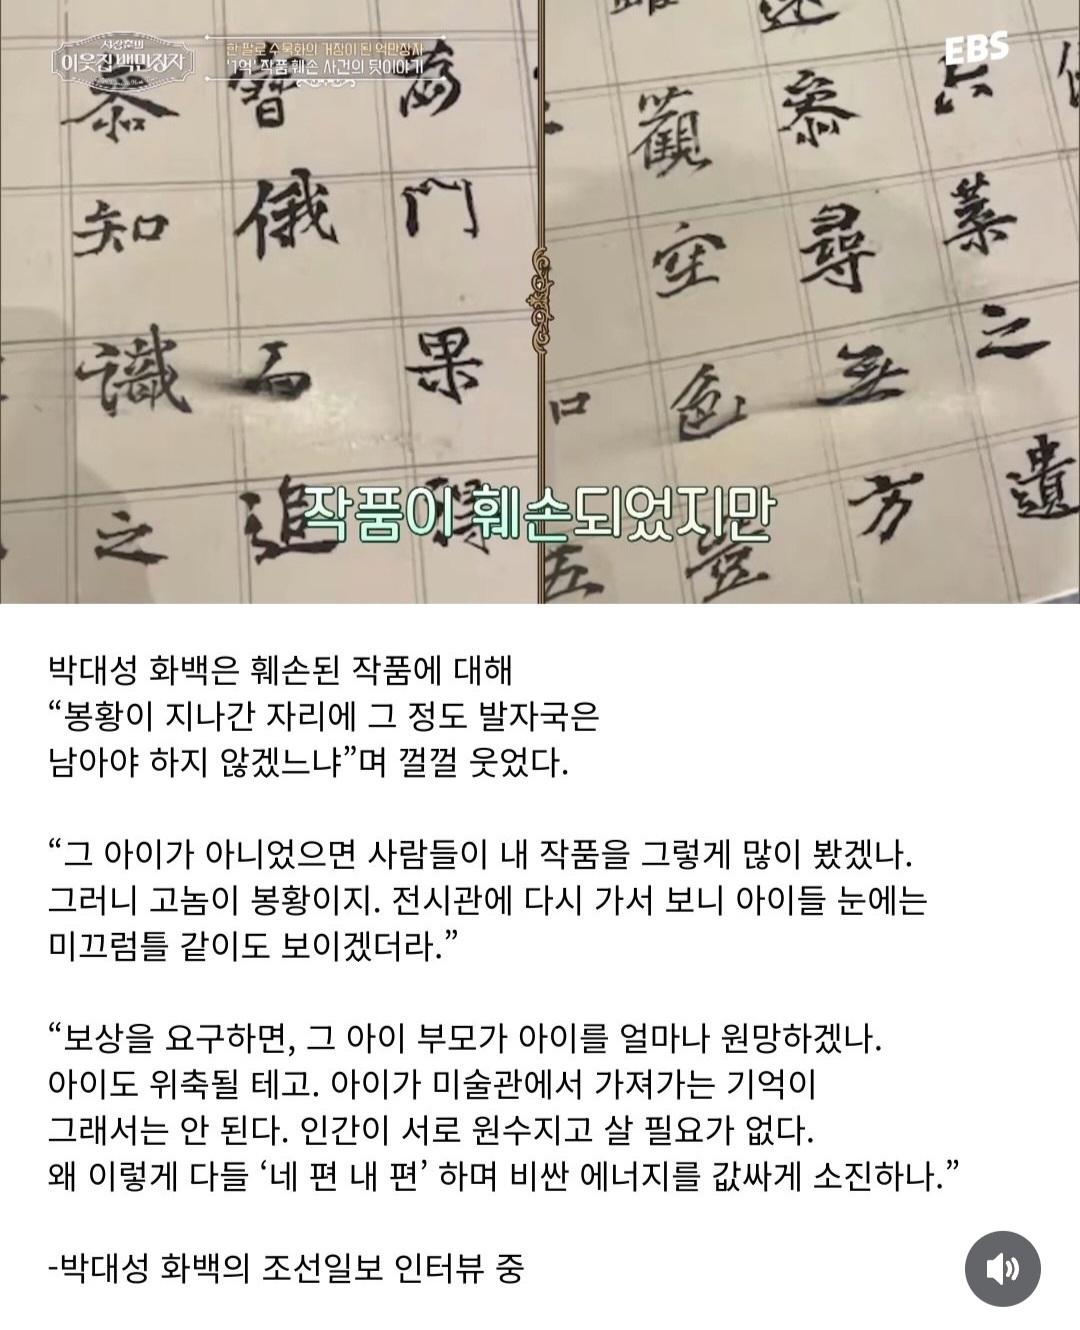 서장훈의
이웃집 백만장자
한 팔로 수묵화의 거장이 된 억만장자
'1억' 작품 훼손 사건의 뒷이야기
EBS
知 俄 門
識 果
之 追
觀
空 尋 蒸
色 無 之
口
方 遺
五
작품이 훼손되었지만
박대성 화백은 훼손된 작품에 대해
“봉황이 지나간 자리에 그 정도 발자국은
남아야 하지 않겠느냐”며 껄껄 웃었다.
“그 아이가 아니었으면 사람들이 내 작품을 그렇게 많이 봤겠나.
그러니 고놈이 봉황이지. 전시관에 다시 가서 보니 아이들 눈에는
미끄럼틀 같이도 보이겠더라.”
“보상을 요구하면, 그 아이 부모가 아이를 얼마나 원망하겠나.
아이도 위축될 테고. 아이가 미술관에서 가져가는 기억이
그래서는 안 된다. 인간이 서로 원수지고 살 필요가 없다.
왜 이렇게 다들 ‘네 편 내 편’ 하며 비싼 에너지를 값싸게 소진하나.”
-박대성 화백의 조선일보 인터뷰 중